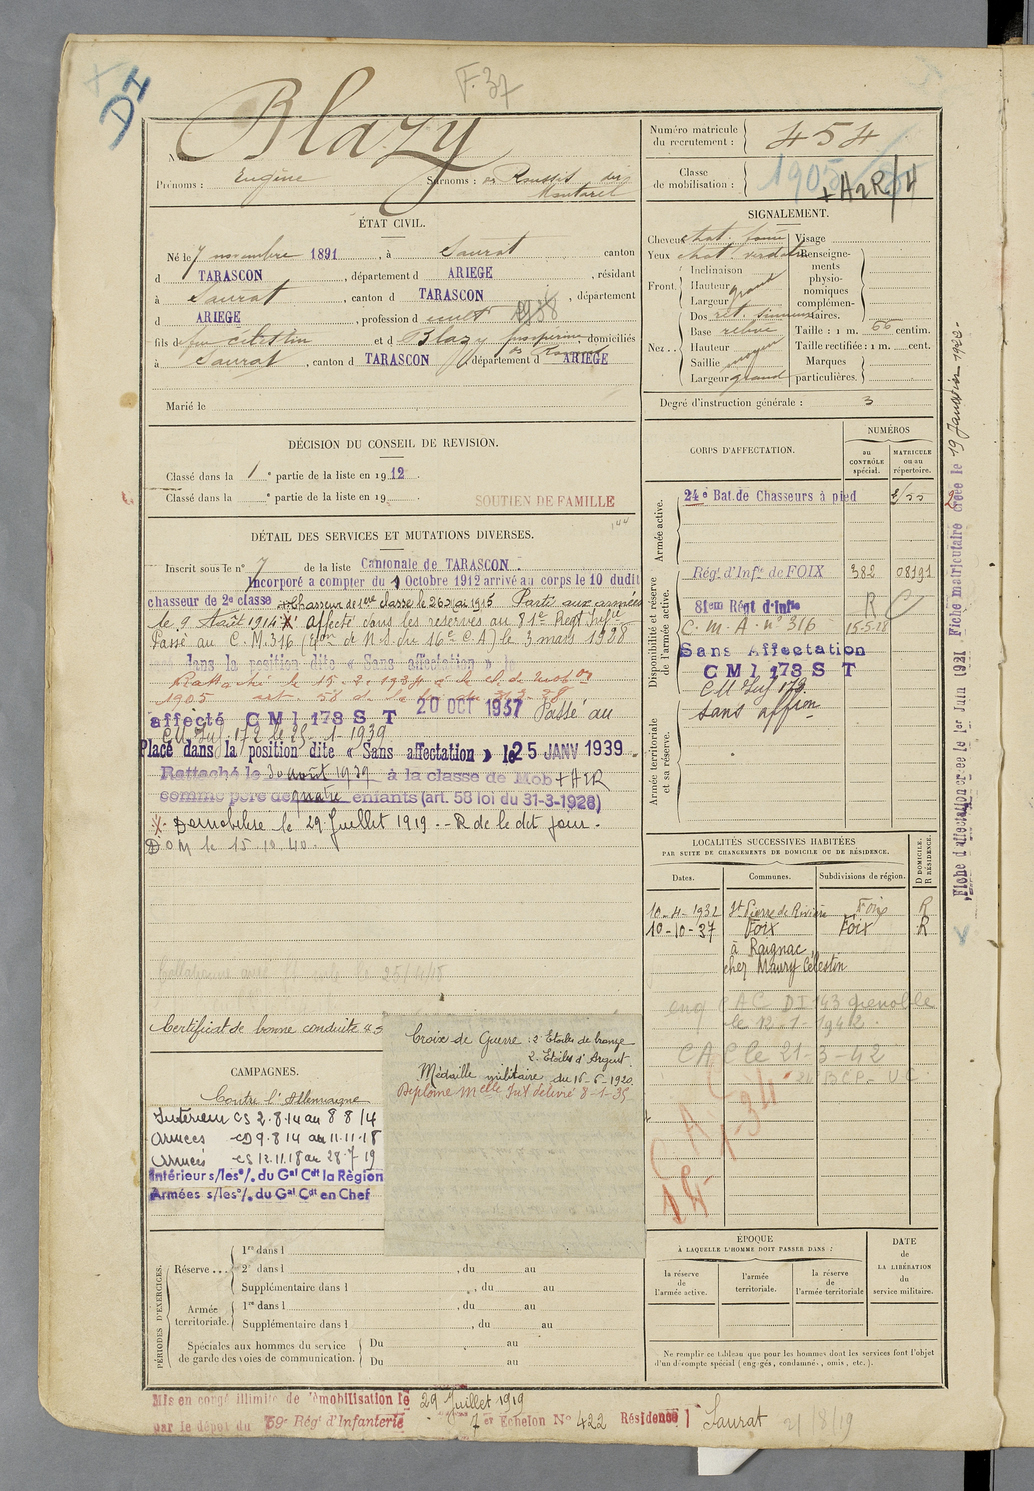 DI
F. 37
Blazy
N
Prénoms : Eugène Surnoms : Montarel
ÉTAT CIVIL.
Né le 7 novembre 1891, à Saurat canton
d TARASCON, département d ARIEGE, résidant
à Saurat, canton d TARASCON, département
d ARIEGE, profession d
fils de feu Célestin et d Blazy , domiciliés
à Saurat, canton d TARASCON, département d ARIEGE
Marié le
DÉCISION DU CONSEIL DE REVISION.
Classé dans la 1 e partie de la liste en 1912.
Classé dans la e partie de la liste en 19
SOUTIEN DE FAMILLE
DÉTAIL DES SERVICES ET MUTATIONS DIVERSES.
Inscrit sous le n° 7 de la liste Cantonale de TARASCON.
Incorporé a compter du 9 Octobre 1912 arrivé au corps le 10 dudit
chasseur de 2e classe Chasseur de 1ere classe le 26 mai 1915 Parti aux armées
le 9 Août 1914 X Affecté dans les réserves au 81e Regt Infie
Passé au C.M. 316 (Gon de N.S. du 16e C.A) le 3 mars 1928
dans la position dite « Sans affectation » le
Rattaché le 15.2.1934 à la cl. de mobon
1905 art. 58 de la loi du 31.3.28
affecté CM I 173 S T 20 OCT 1937 Passé au
CM Inf. 172 le 25-1-1939
Placé dans la position dite « Sans affectation » le 25 JANV 1939
Rattaché le 30 août 1939 à la classe de Mob + A2R
comme père de quatre enfants (art. 58 loi du 31-3-1928)
X. Démobilisé le 29 Juillet 1919. - R de le dit jour.
DOM le 15.10.40.
Certificat de bonne conduite
Croix de Guerre : 2 Etoiles de bronze
2 Etoiles d'Argent
Médaille militaire du 16-6-1920
Diplôme Melle Inf délivré 8-1-35
CAMPAGNES.
Contre l'Allemagne
Intérieur CS 2.8.14 au 8 8 14
Armées CD 9.8 14 au 11.11.18
Armées CS 12.11.18 au 28.7 19
Intérieur s/les o/. du Gal Cdt la Région
Armées s/les o/. du Gal Cdt en Chef
PÉRIODES D'EXERCICES.
Réserve ...
1re dans l
2e dans l , du au
Supplémentaire dans l , du au
Armée territoriale.
1re dans l , du au
Supplémentaire dans l , du au
Spéciales aux hommes du service de garde des voies de communication.
Du au
Du au
Mis en congé illimité de démobilisation le 29 Juillet 1919
par le dépôt du 59e Régt d'Infanterie 7 er Echelon N° 422 Résidence Saurat
Numéro matricule du recrutement : 454
Classe de mobilisation : 1905
+A2R/4
SIGNALEMENT.
Cheveux chat. foncé
Yeux chat. verdâtre
Front.
Inclinaison
Hauteur grand
Largeur
Nez..
Dos rect. sinueux
Base relevé
Hauteur
Saillie moyen
Largeur grand
Visage
Renseignements physionomiques complémentaires.
Taille : 1 m. 66 centim.
Taille rectifiée : 1 m. cent.
Marques particulières.
Degré d'instruction générale : 3
CORPS D'AFFECTATION.
NUMÉROS
au CONTRÔLE spécial.
MATRICULE ou au répertoire.
Armée active.
24e Bat. de Chasseurs à pied
Disponibilité et réserve de l'armée active.
Régt d'Infie de FOIX 382 08191
81em Régt d'Infie R
C.M.A. n° 316 15-5-28
Sans Affectation
CM I 173 S T
CM Inf 173
sans affon
Armée territoriale et sa réserve.
LOCALITÉS SUCCESSIVES HABITÉES
PAR SUITE DE CHANGEMENTS DE DOMICILE OU DE RÉSIDENCE.
Dates. Communes. Subdivisions de région. D DOMICILE. R RÉSIDENCE.
10-4-1932 St Pierre de Rivière Foix R
10-10-37 Foix Foix R
à Raignac,
chez Maury Célestin
CAC DI 143 grenoble
le 12-1-1942.
CAC le 21-3-42
ÉPOQUE
À LAQUELLE L'HOMME DOIT PASSER DANS :
la réserve de l'armée active.
l'armée territoriale.
la réserve de l'armée territoriale
DATE de LA LIBÉRATION du service militaire.
Ne remplir ce tableau que pour les hommes dont les services font l'objet
d'un décompte spécial (engagés, condamnés, omis, etc.).
Fiche d'affectation créée le 1er Juin 1921 Fiche matriculaire créée le 19 Janvier 1920.